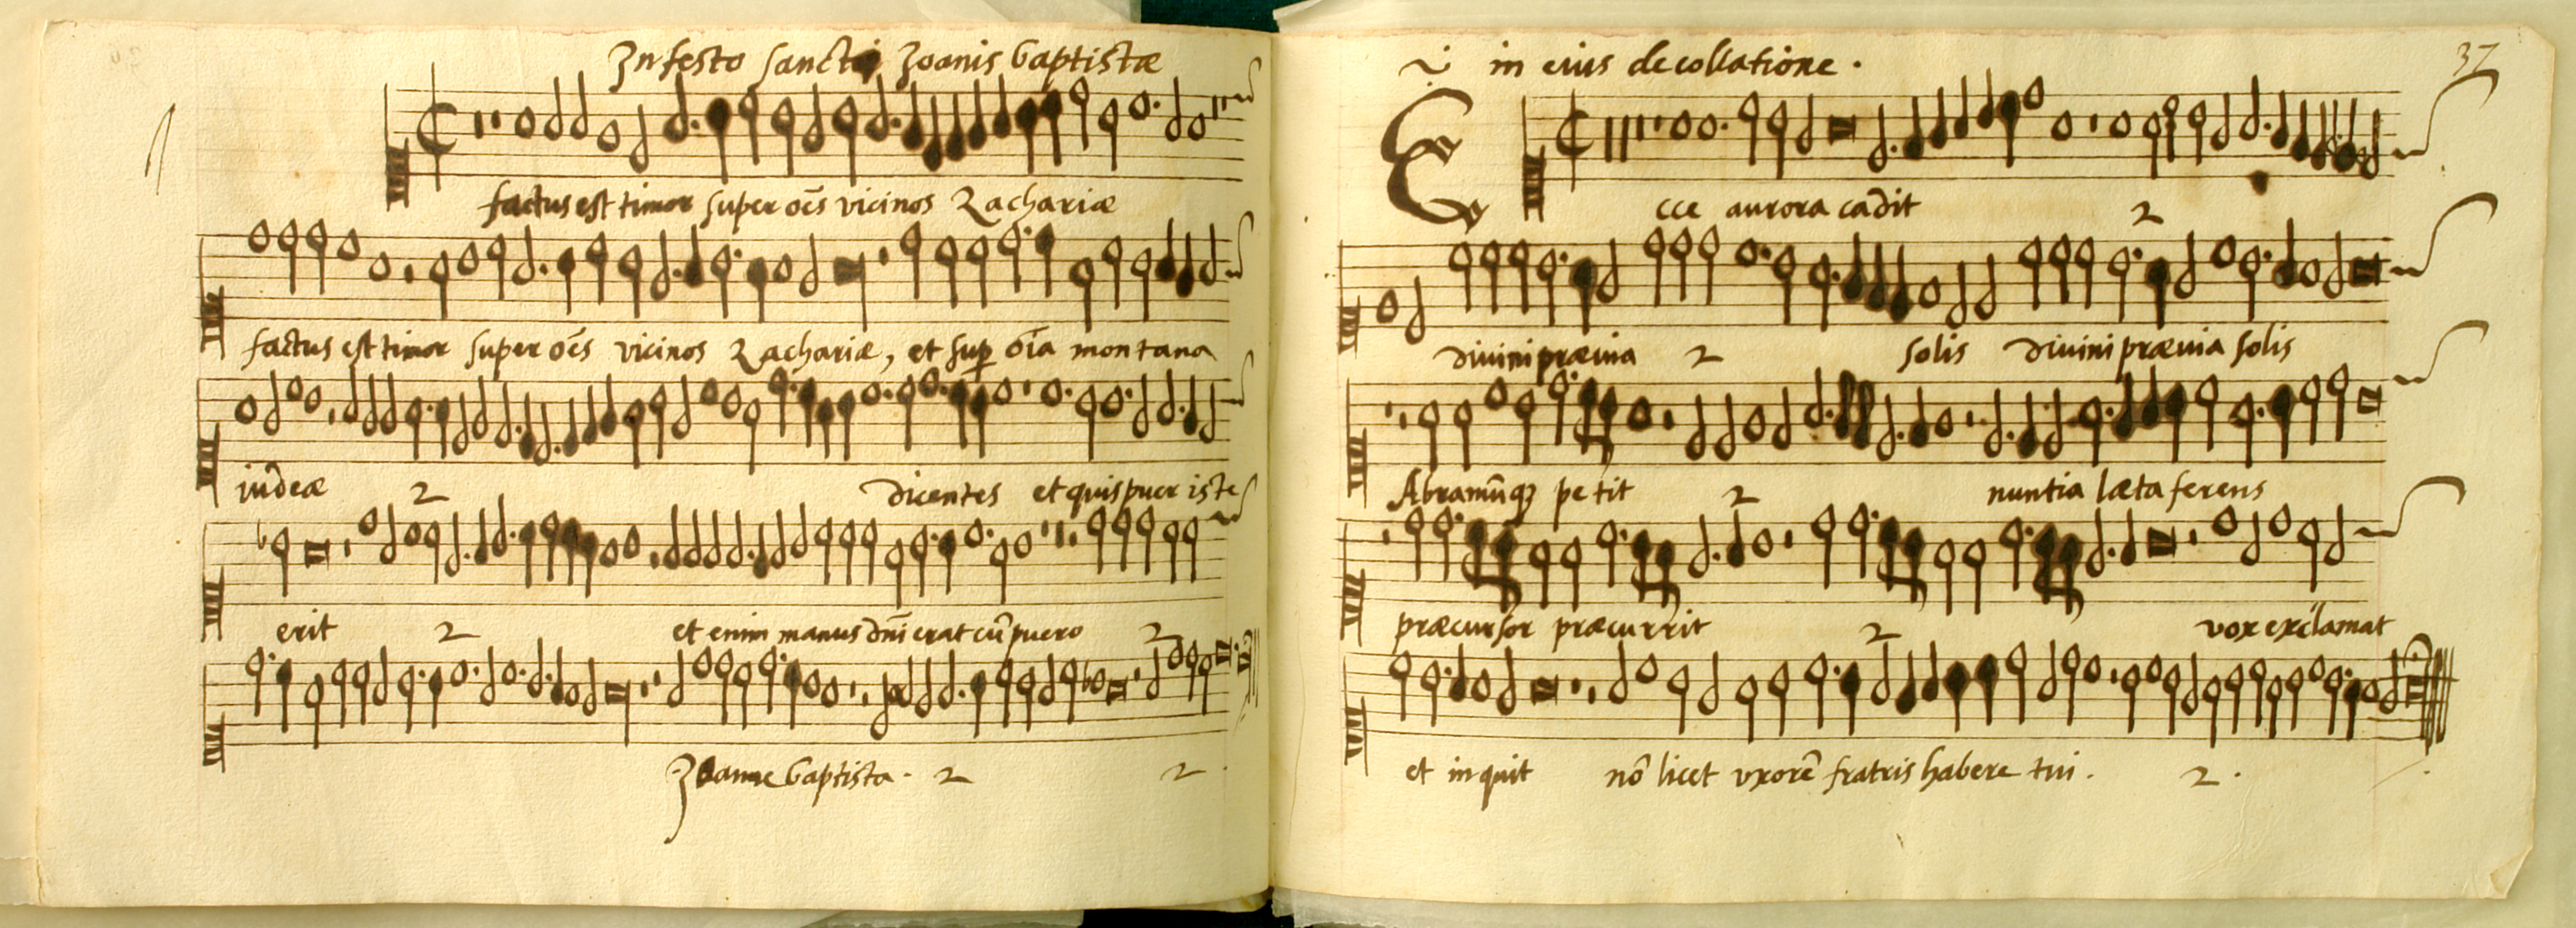 In festo sancti Joanis baptistæ
factus est timor super oēs vicinos Zachariæ
factus est timor super oēs vicinos Zachariæ, et sup oīa montana
iudeæ 2 dicentes et quis puer iste
erit 2 et enim manus dnī erat cū puero 2
Joanne baptista · 2 2 ·
in eius decollatione ·
37
Ecce aurora cadit 2
divini prævia 2 solis divini prævia solis
Abramūq petit 2 nuntia læta ferens
præcursor præcurrit 2 vox exclamat
et inquit nō licet vxorē fratris habere tui · 2 ·